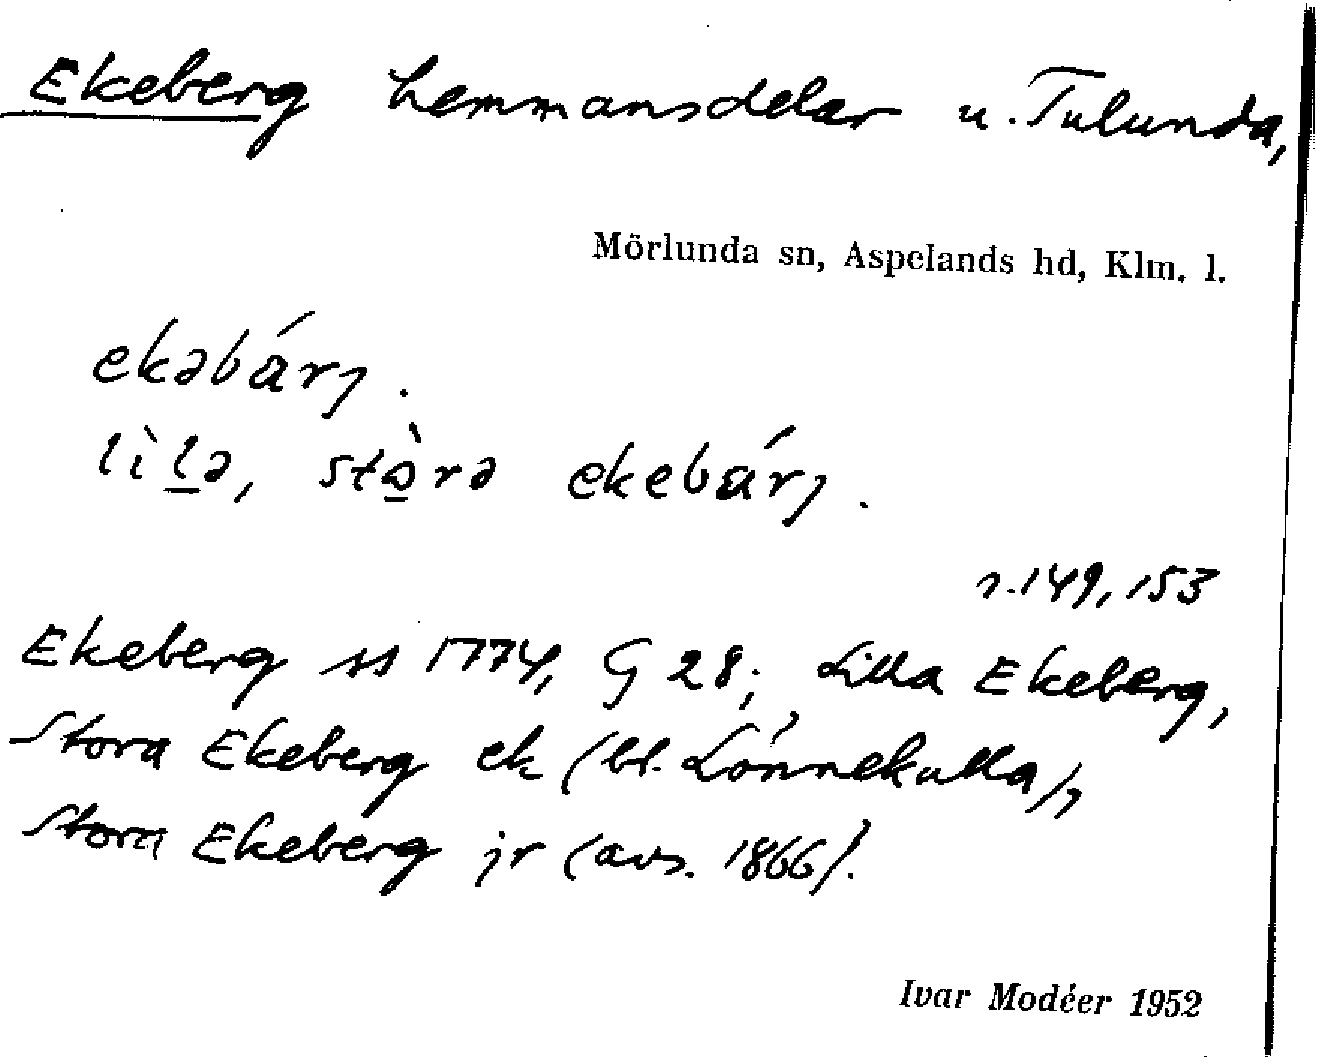 Ekeberg hemmansdelar u. Tulunda,
Mörlunda sn, Aspelands hd, Klm. l.
ekəbárj.
lìlə, stòrə ekebárj.
s. 149, 153
Ekeberg ss 1774, G 28; Lilla Ekeberg,
Stora Ekeberg ek (bl. Lönnekulla),
Stora Ekeberg jr (avs. 1866).
Ivar Modéer 1952